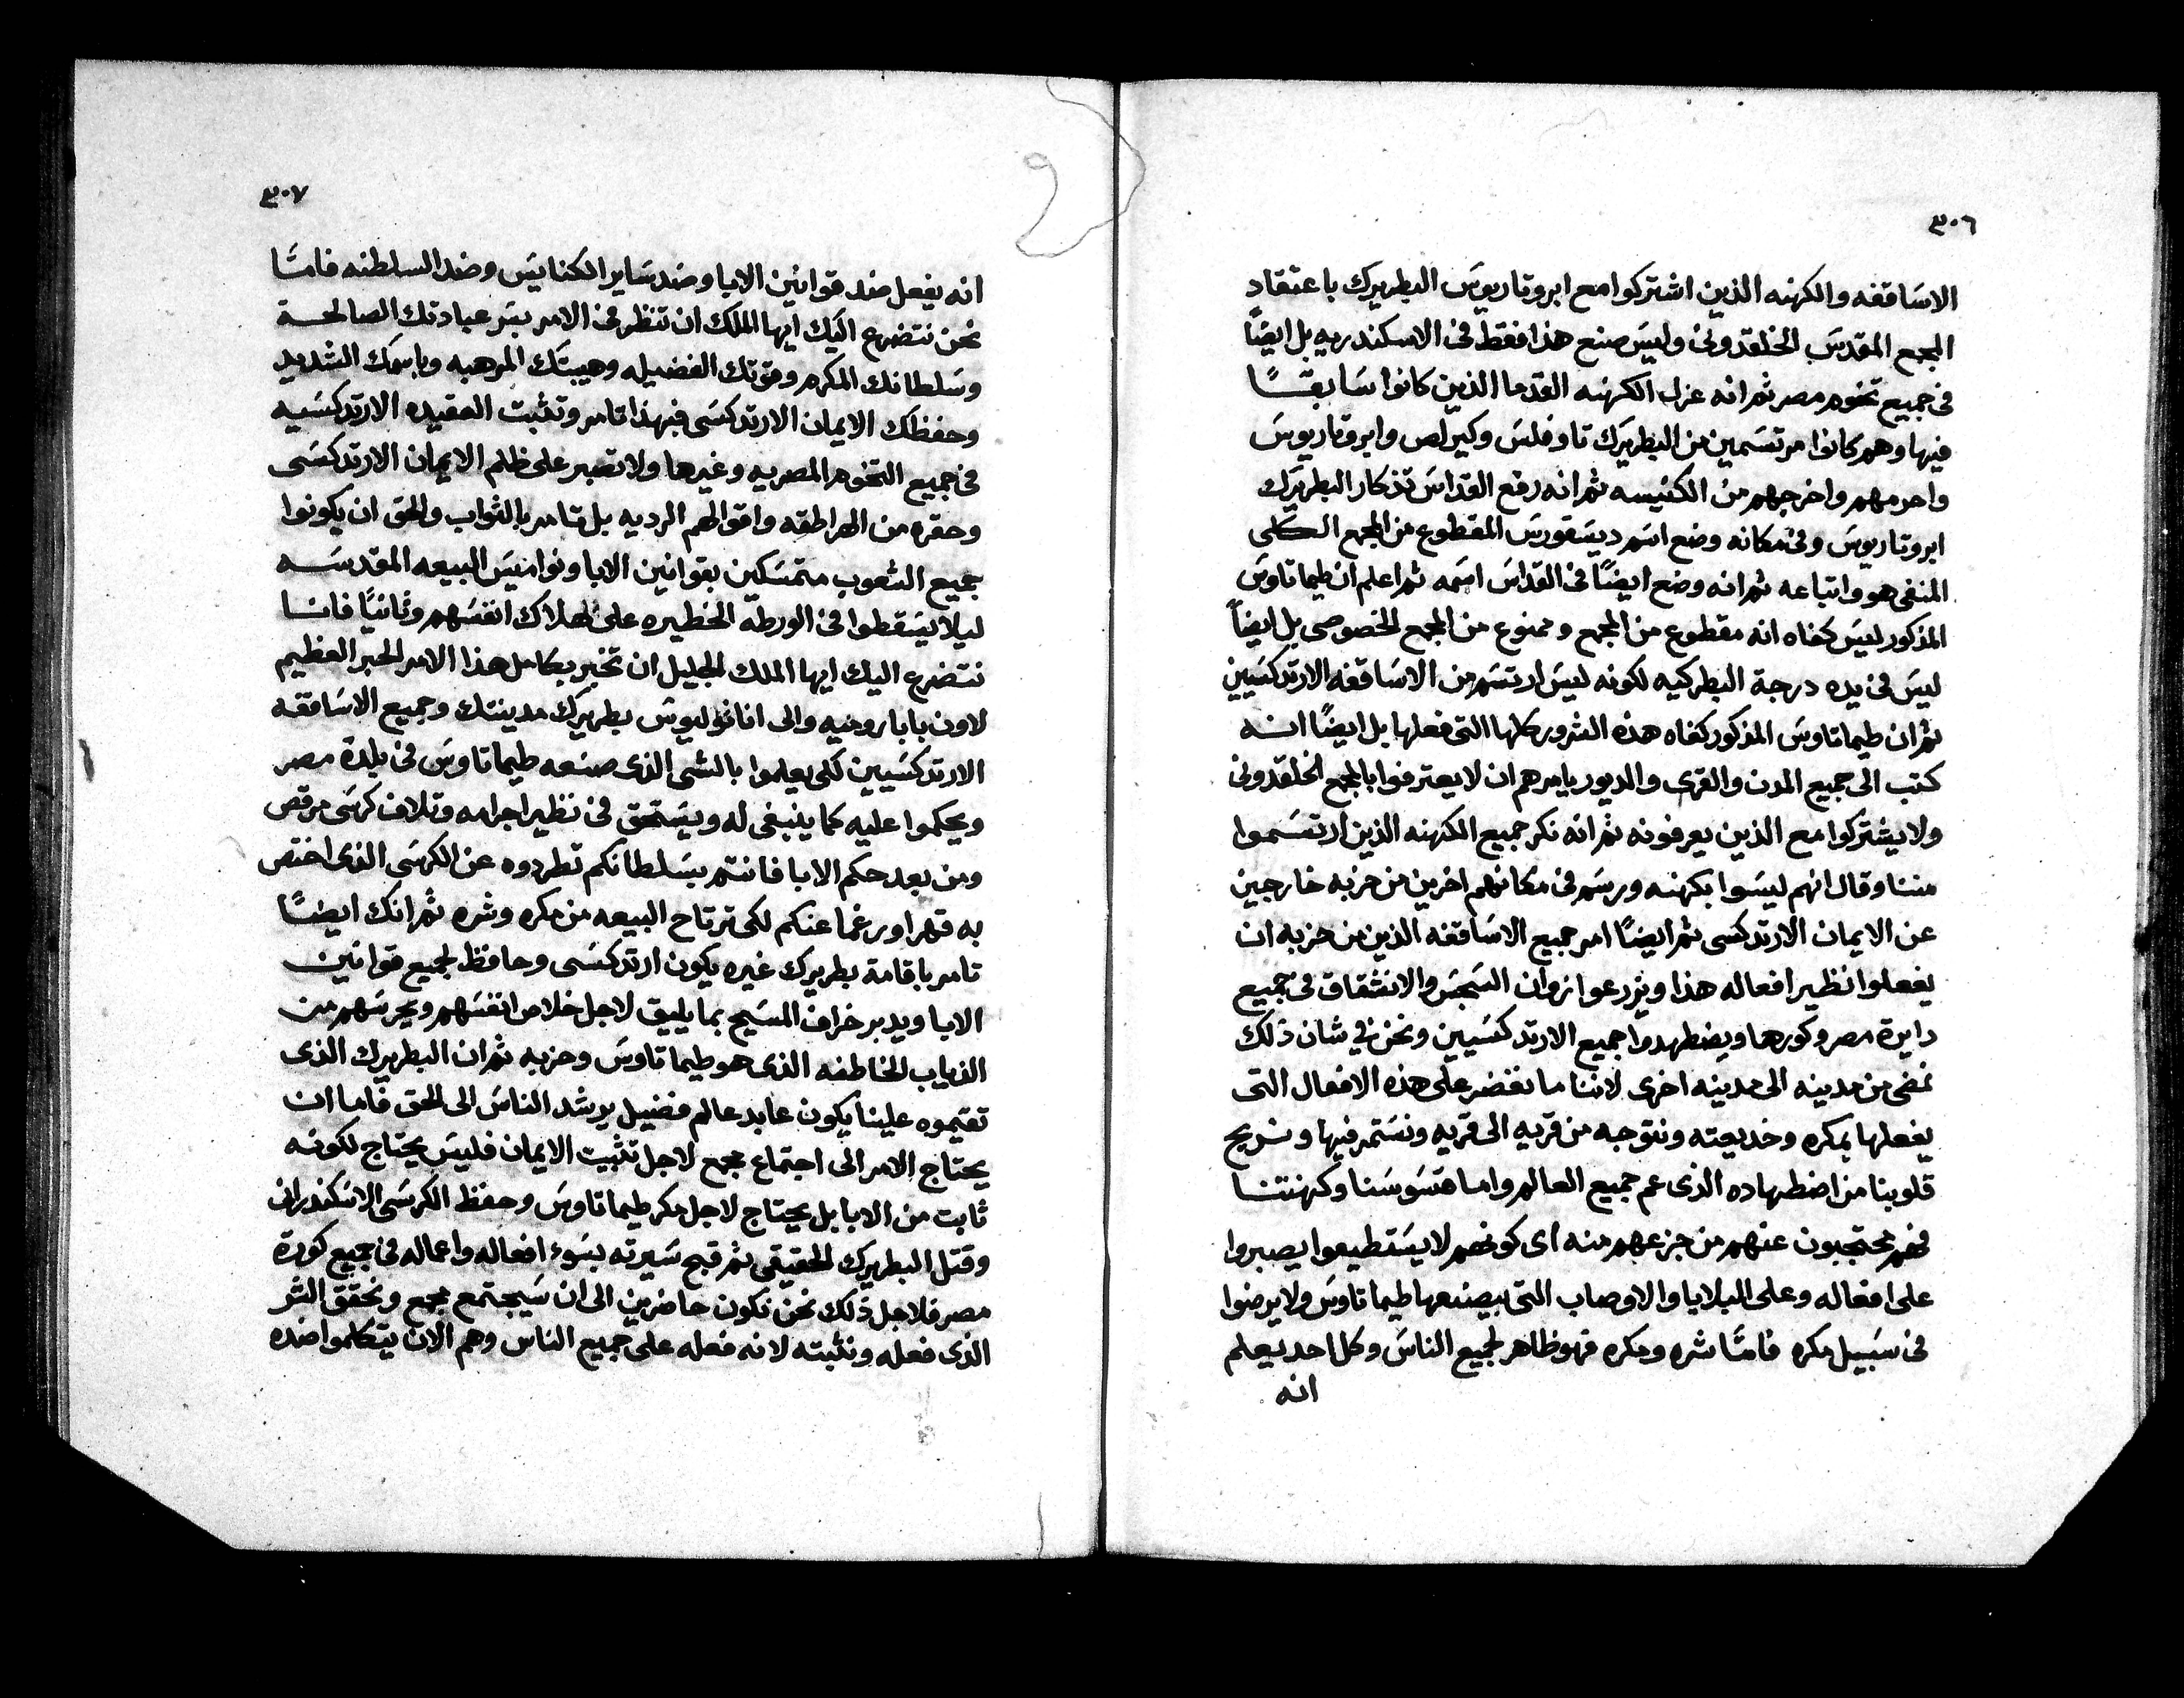 ٣٠٦
الاساقفه والكهنه الذين اشتركوا مع ابروتاريوس البطريرك باعتقاد
المجمع المقدس الخلقدونى وليس صنع هذا فقط فى الاسكندريه بل ايضًا
فى جميع تخوم مصر ثم انه عزل الكهنه القدما الذين كانوا سابقًا
فيها وهم كانوا مرتسمين من البطريرك تاوفلس وكيرلص وابروتاريوس
واحرمهم واخرجهم من الكنيسه ثم انه رفع القداس تذكار البطريرك
ابروتاريوس وفى مكانه وضع اسم ديسقورس المقطوع من المجمع الكلى
المنفى هو واتباعه ثم انه وضع ايضًا فى القداس اسمه ثم اعلم ان طيماتاوس
المذكور ليس كفاه انه مقطوع من المجمع وممنوع من المجمع الخصوصى بل ايضًا
ليس فى يده درجة البطركيه لكونه ليس ارتسم من الاساقفه الارتدكسيين
ثم ان طيماتاوس المذكور كفاه هذه الشرور كلها التى فعلها بل ايضًا انه
كتب الى جميع المدن والقرى والديور يامرهم ان لا يعترفوا بالمجمع الخلقدونى
ولا يشتركوا مع الذين يعرفونه ثم انه نكر جميع الكهنه الذين ارتسموا
مننا وقال انهم ليسوا بكهنه ورسم فى مكانهم اخرين من حزبه خارجين
عن الايمان الارتدكسى ثم ايضًا امر جميع الاساقفه الذين من حزبه ان
يفعلوا نظير افعاله هذا ويزرعوا زوان السجس والانشقاق فى جميع
دايرة مصر وكورها ويضطهدوا جميع الارتدكسيين ونحن فى شان ذلك
نمضى من مدينه الى مدينه اخرى لاننا ما نقضر على هذه الافعال التى
يفعلها بمكره وخديعته ونتوجه من قريه الى قريه ونستمر فيها ونريح
قلوبنا من اضطهاده الذى عم جميع العالم واما قسوسنا وكهنتنا
فهم محتجبون عنهم من جزعهم منه اى كونهم لا يستطيعوا يصبروا
على افعاله وعلى البلايا والاوصاب التى بيصنعها طيماتاوس ولا يرضوا
فى سبيل مكره فامّا شره ومكره فهو ظاهر لجميع الناس وكل احد يعلم
انه
٣٠٧
انه يفعل ضد قوانين الابا وضد ساير الكنايس وضد السلطنه فامّا
نحن نتضرع اليك ايها الملك ان تنظر فى الامر بسر عبادتك الصالحة
وسلطانك المكرم وقوتك الفضيله وهيبتك المرهبه وباسمك الشديد
وحفظك الايمان الارتدكسى فبهذا تامر وتثبت العقيده الارتدكسيه
فى جميع التخوم المصريه وغيرها ولا تصبر على ظلم الايمان الارتدكسى
وحقره من الهراطقه واقوالهم الرديه بل تامر بالثواب والحق ان يكونوا
جميع الشعوب متمسكين بقوانين الابا ونواميس البيعه المقدسه
ليلا يسقطوا فى الورطه الخطيره على هلاك انفسهم وثانيًا فانا
نتضرع اليك ايها الملك الجليل ان تخبر بكامل هذا الامر الحبر العظيم
لاون بابا روميه والى اناطوليوس بطريرك مدينتك وجميع الاساقفه
الارتدكسيين لكى يعلموا بالشى الذى صنعه طيماتاوس فى بلدة مصر
ويحكموا عليه كما ينبغى له ويستحق فى نظير اجرامه وتلاف كرسى مرقص
ومن بعد حكم الابا فانتم بسلطانكم تطردوه عن الكرسى الذى اختص
به قهرا ورغما عنكم لكى ترتاح البيعه من مكره وشره ثم انك ايضًا
تامر باقامة بطريرك غيره يكون ارتدكسى وحافظ لجميع قوانين
الابا ويدبر خراف المسيح بما يليق لاجل خلاص انفسهم ويحرسهم من
الذياب الخاطفه الذى هو طيماتاوس وحزبه ثم ان البطريرك الذى
تقيموه علينا يكون عابد عالم فضيل يرشد الناس الى الحق فاما ان
يحتاج الامر الى اجتماع مجمع لاجل تثبيت الايمان فليس يحتاج لكونه
ثابت من الابا بل يحتاج لاجل مكر طيماتاوس وحفظ الكرسى الاسكندرانى
وقتل البطريرك الحقيقى ثم قبح سيرته بسوء افعاله واعماله فى جميع كورة
مصر فلاجل ذلك نحن نكون حاضرين الى ان سيجتمع مجمع ونحقق الشر
الذى فعله ونثبته لانه فعله على جميع الناس وهم الان يتكلموا ضده